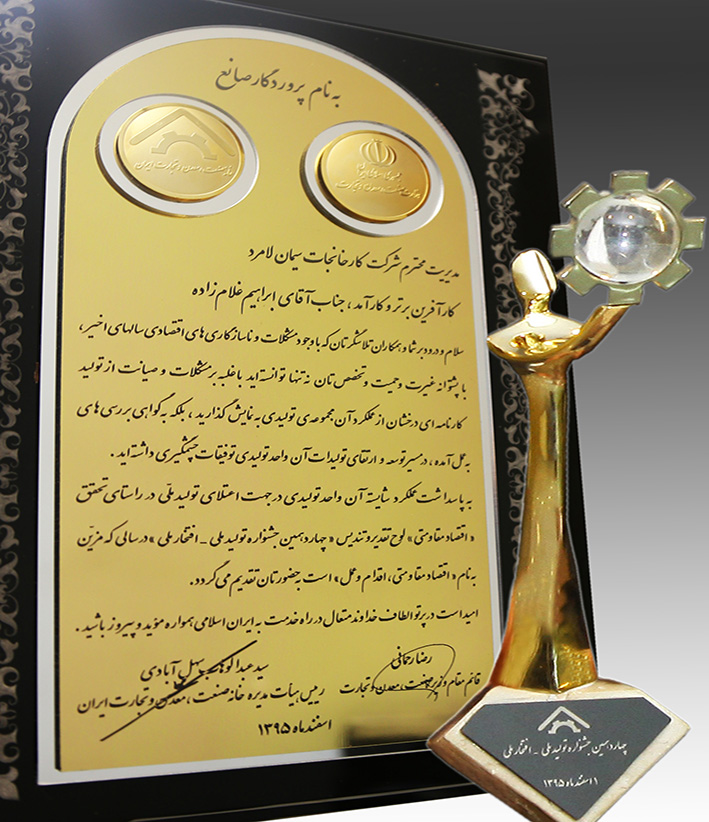 به نام پروردگار صانع
خانه صنعت، معدن و تجارت ایران
جمهوری اسلامی ایران
وزارت صنعت، معدن و تجارت
مدیریت محترم شرکت کارخانجات سیمان لامرد
کارآفرین برتر و کارآمد، جناب آقای ابراهیم غلام زاده
سلام و درود بر شما و همکاران تلاشگرتان که با وجود مشکلات و ناسازگاری های اقتصادی سالهای اخیر،
با پشتوانه غیرت و حمیت و تخصص تان نه تنها توانسته اید با غلبه بر مشکلات و صیانت از تولید
کارنامه ای درخشان از عملکرد آن مجموعه ی تولیدی به نمایش گذارید، بلکه به گواهی بررسی های
به عمل آمده، در مسیر توسعه و ارتقای تولیدات آن واحد تولیدی توفیقات چشمگیری داشته اید.
به پاسداشت عملکرد شایسته آن واحد تولیدی در جهت اعتلای تولید ملّی در راستای تحقق
«اقتصاد مقاومتی» لوح تقدیر و تندیس «چهاردهمین جشنواره تولید ملی - افتخار ملی» در سالی که مزیّن
به نام «اقتصاد مقاومتی، اقدام و عمل» است به حضورتان تقدیم می گردد.
امید است در پرتو الطاف خداوند متعال در راه خدمت به ایران اسلامی همواره مؤید و پیروز باشید.
رضا رحمانی
قائم مقام وزیر صنعت، معدن و تجارت
سید عبدالوهاب سهل آبادی
رییس هیأت مدیره خانه صنعت، معدن و تجارت ایران
اسفند ماه ۱۳۹۵
چهاردهمین جشنواره تولید ملی - افتخار ملی
۱ اسفند ماه ۱۳۹۵